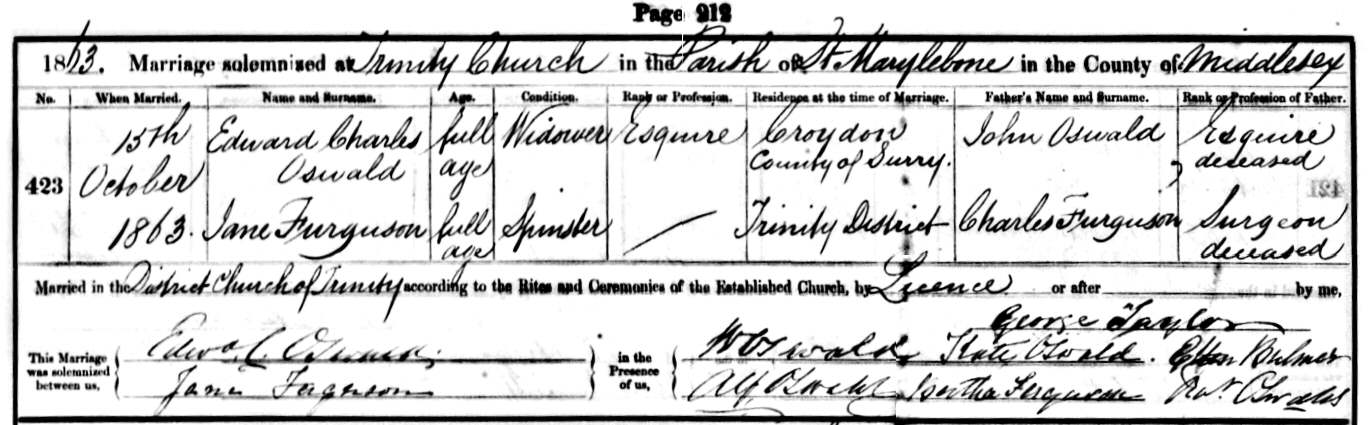 Page 212
1863. Marriage solemnized at Trinity Church in the Parish of St Marylebone in the County of Middlesex
No. When Married. Name and Surname. Age. Condition. Rank or Profession. Residence at the time of Marriage. Father's Name and Surname. Rank or Profession of Father.
423 15th October 1863. Edward Charles Oswald full age Widower Esquire Croydon County of Surry. John Oswald Esquire deceased
Jane Furguson full age Spinster Trinity District Charles Furguson Surgeon deceased
421
Married in the District Church of Trinity according to the Rites and Ceremonies of the Established Church, by Licence or after by me,
George Taylor
This Marriage was solemnized between us, Edwd. C. Oswald. Jane Ferguson in the Presence of us, W Oswald Kate Oswald. Ellen Bulmer
Alf Oswald Bertha Ferguson Robt. Oswald